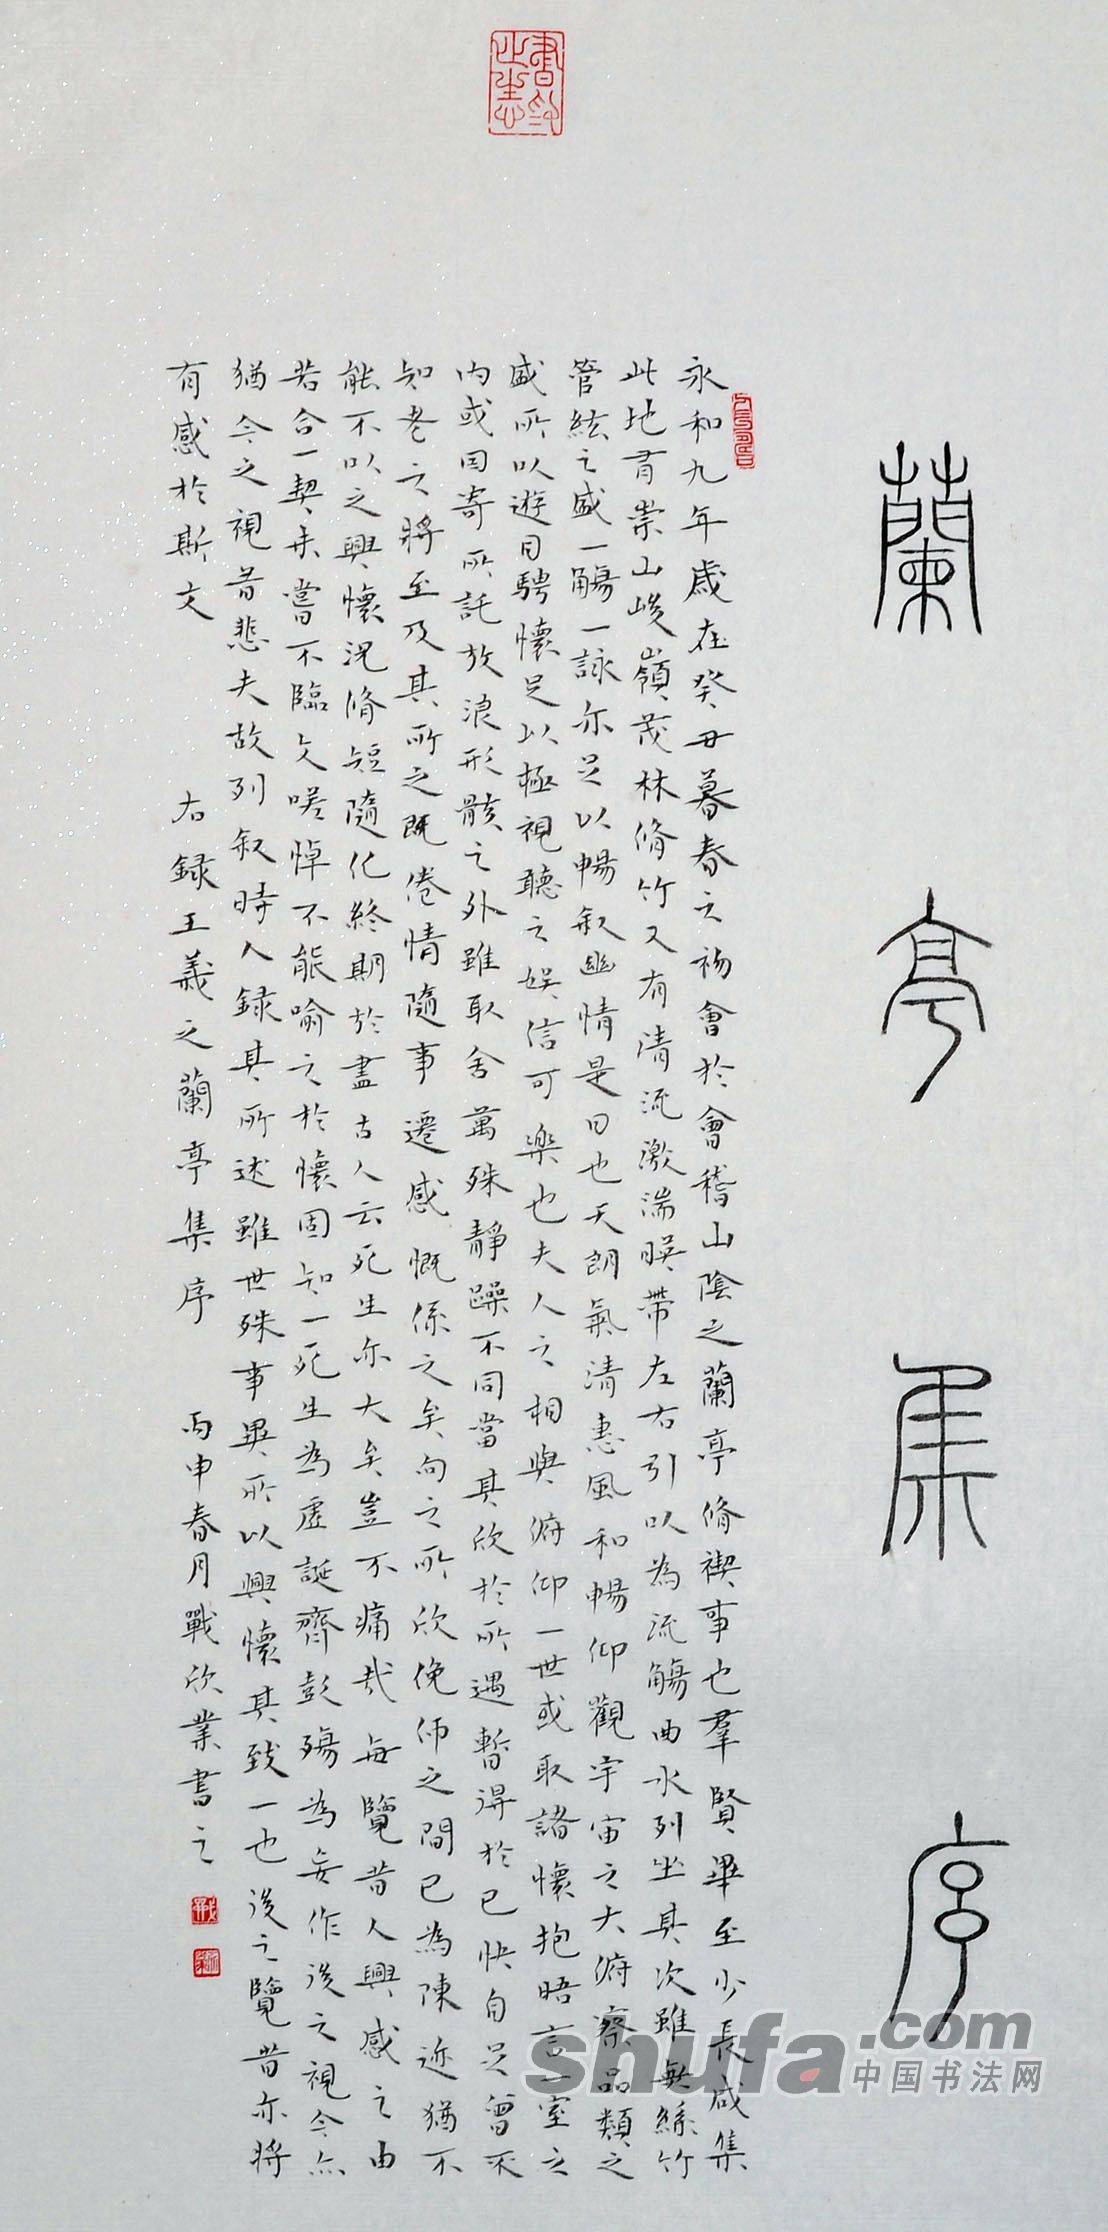 蘭亭集序
永和九年歲在癸丑暮春之初會於會稽山陰之蘭亭脩禊事也羣賢畢至少長咸集
此地有崇山峻嶺茂林脩竹又有清流激湍暎帶左右引以為流觴曲水列坐其次雖無絲竹
管絃之盛一觴一詠亦足以暢叙幽情是日也天朗氣清惠風和暢仰觀宇宙之大俯察品類之
盛所以遊目騁懷足以極視聽之娛信可樂也夫人之相與俯仰一世或取諸懷抱晤言一室之
內或因寄所託放浪形骸之外雖取舍萬殊靜躁不同當其欣於所遇暫得於己快自足曾不
知老之將至及其所之既倦情隨事遷感慨係之矣向之所欣俛仰之間已為陳迹猶不
能不以之興懷況脩短隨化終期於盡古人云死生亦大矣豈不痛哉每覽昔人興感之由
若合一契未嘗不臨文嗟悼不能喻之於懷固知一死生為虛誕齊彭殤為妄作後之視今亦
猶今之視昔悲夫故列叙時人録其所述雖世殊事異所以興懷其致一也後之覽昔亦將
有感於斯文 右録王羲之蘭亭集序 丙申春月戰欣業書之
shufa.com
中国书法网